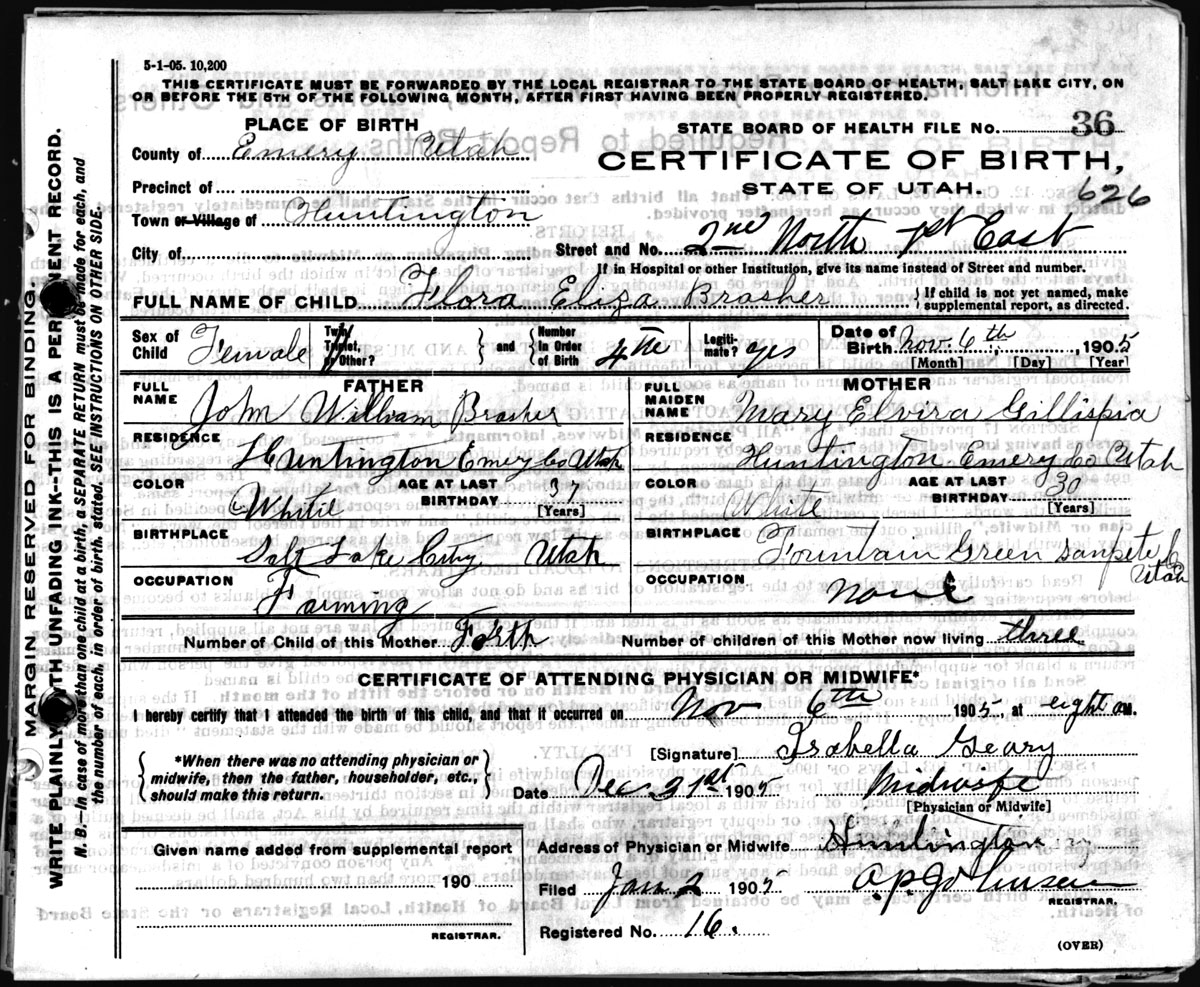 5-1-05. 10,200
THIS CERTIFICATE MUST BE FORWARDED BY THE LOCAL REGISTRAR TO THE STATE BOARD OF HEALTH, SALT LAKE CITY, ON
OR BEFORE THE 5TH OF THE FOLLOWING MONTH, AFTER FIRST HAVING BEEN PROPERLY REGISTERED.
PLACE OF BIRTH
STATE BOARD OF HEALTH FILE No. 36
County of Emery Utah
CERTIFICATE OF BIRTH,
STATE OF UTAH.
626
Precinct of
Town or Village of Huntington
City of
Street and No. 2nd North 1st East
If in Hospital or other Institution, give its name instead of Street and number.
FULL NAME OF CHILD Flora Eliza Brasher
{ If child is not yet named, make supplemental report, as directed.
Sex of Child Female
Twin, Triplet, or Other? } and { Number in Order of Birth 4th
Legitimate? yes
Date of Birth Nov. 6th 1905
[Month] [Day] [Year]
FATHER
FULL NAME John William Brasher
RESIDENCE Huntington Emery Co Utah
COLOR White
AGE AT LAST BIRTHDAY 37 [Years]
BIRTHPLACE Salt Lake City Utah
OCCUPATION Farming
MOTHER
FULL MAIDEN NAME Mary Elvira Gillispia
RESIDENCE Huntington Emery Co Utah
COLOR White
AGE AT LAST BIRTHDAY 30 [Years]
BIRTHPLACE Fountain Green Sanpete Co Utah
OCCUPATION None
Number of Child of this Mother Forth
Number of children of this Mother now living three
CERTIFICATE OF ATTENDING PHYSICIAN OR MIDWIFE*
I hereby certify that I attended the birth of this child, and that it occurred on Nov 6th 1905, at eight AM.
{ *When there was no attending physician or midwife, then the father, householder, etc., should make this return. }
[Signature] Isabella Geary
Date Dec. 31st 1905
Midwife
[Physician or Midwife]
Given name added from supplemental report
190
REGISTRAR.
Address of Physician or Midwife Huntington
Filed Jan 2 1905
A.P. Johnson
REGISTRAR.
Registered No. 16.
(OVER)
MARGIN RESERVED FOR BINDING.
WRITE PLAINLY WITH UNFADING INK—THIS IS A PERMANENT RECORD.
N. B.—In case of more than one child at a birth, a SEPARATE RETURN must be made for each, and
the number of each, in order of birth, stated. SEE INSTRUCTIONS ON OTHER SIDE.